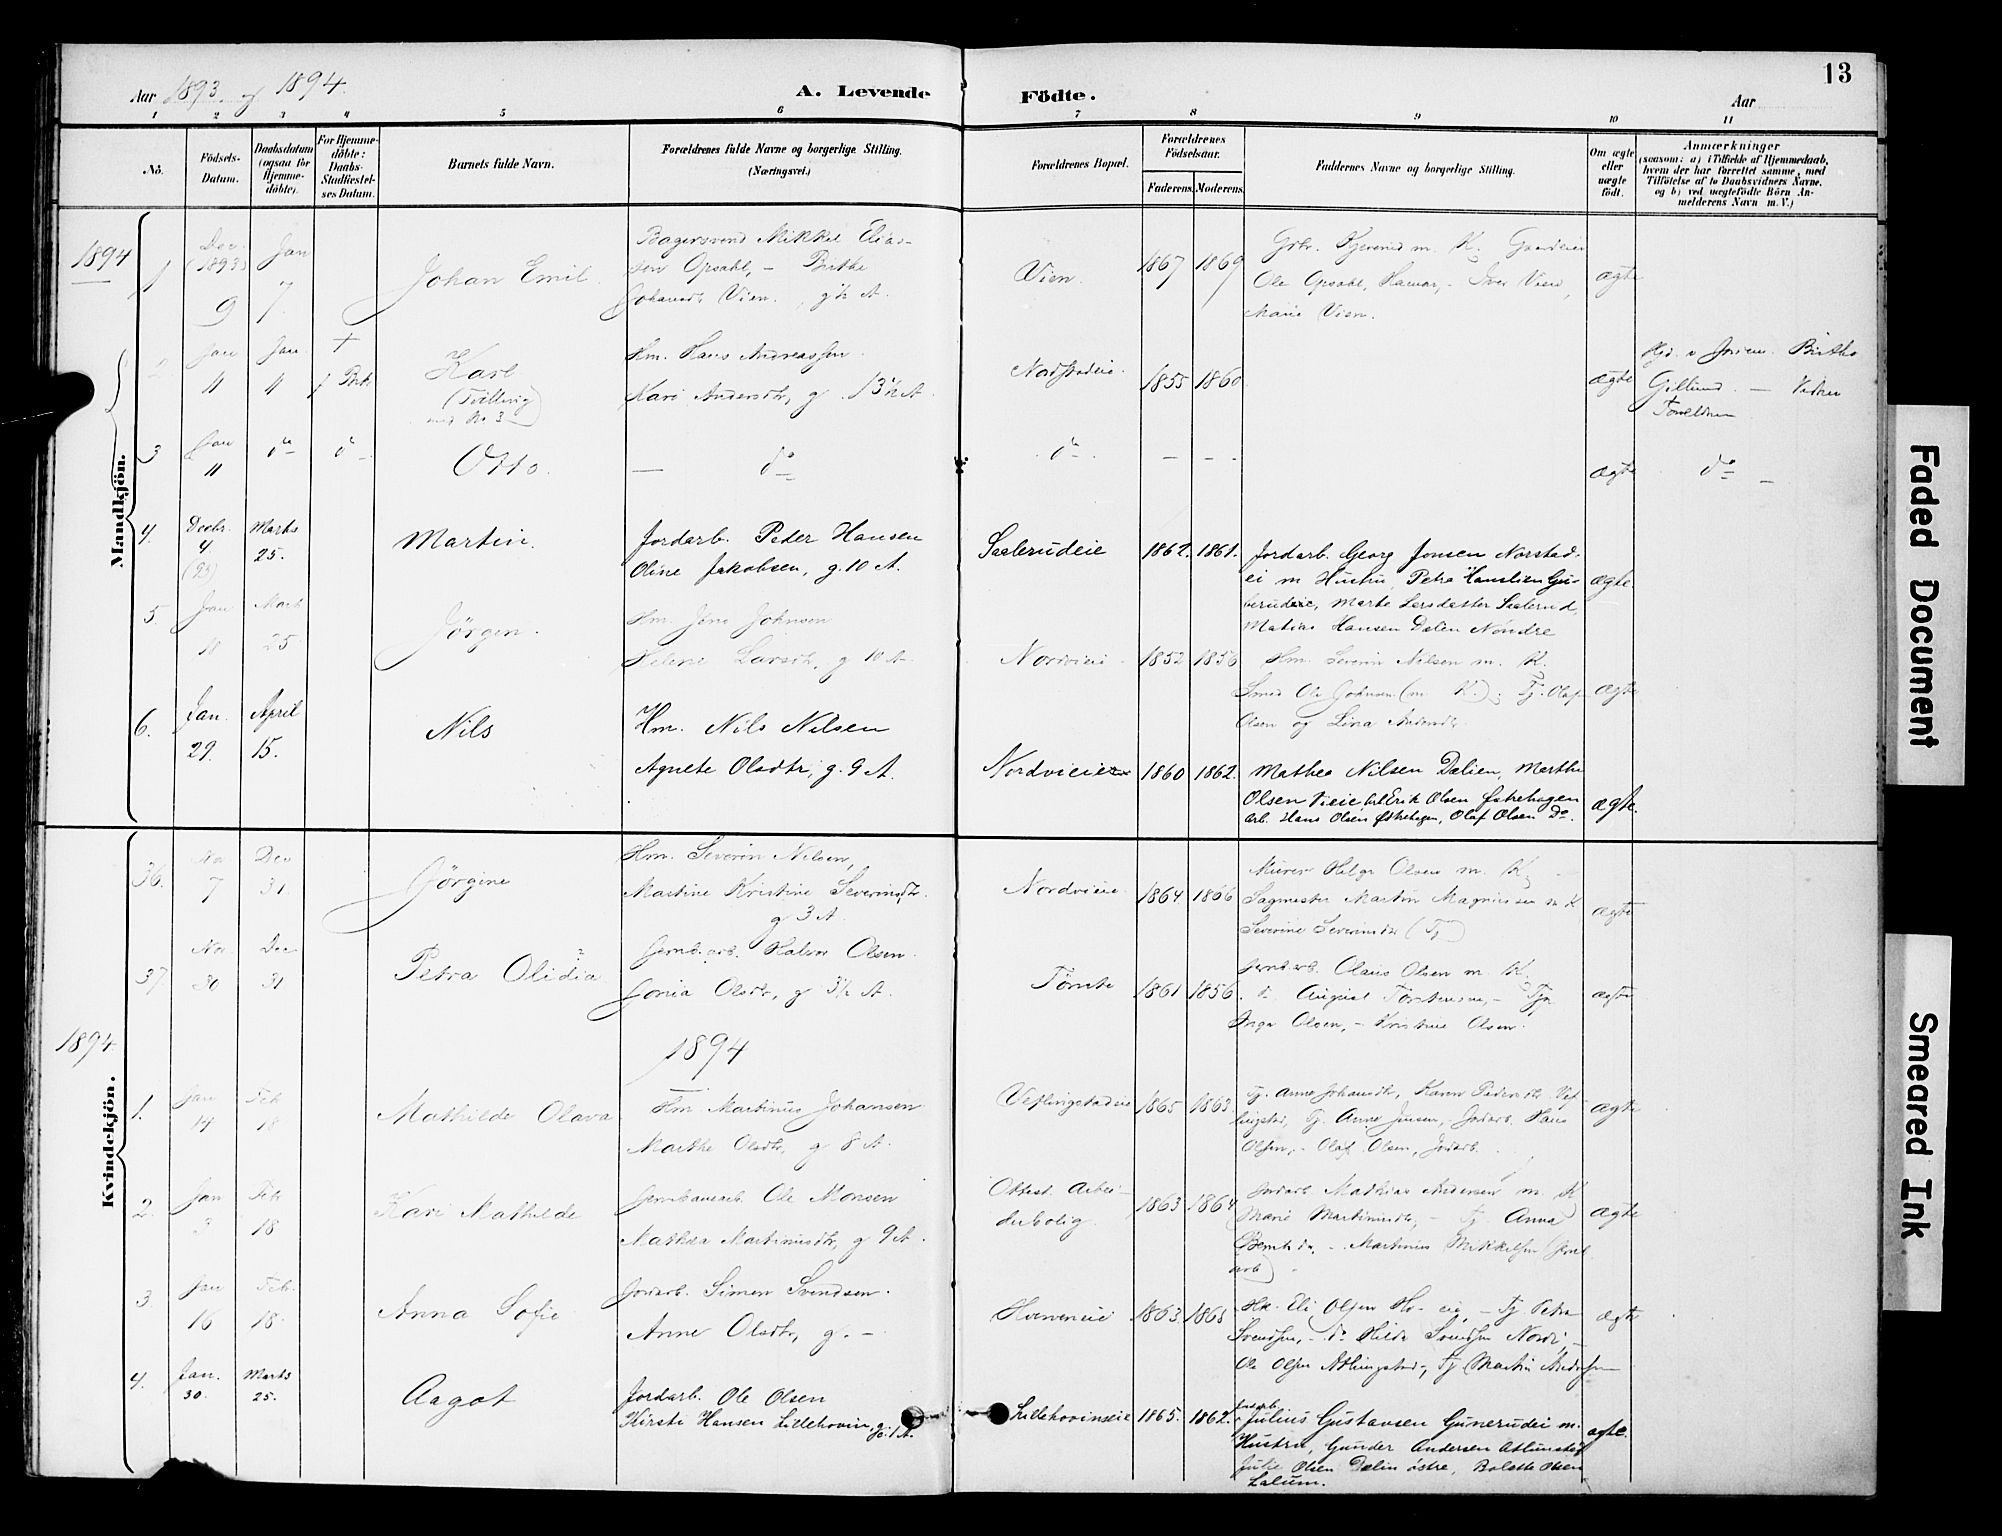 Aar 1893 og 1894.
A. Levende Födte.
Aar
13
1 2 3 4 5 6 7 8 9 10 11
No.
Födsels-Datum.
Daabsdatum (ogsaa for Hjemme-döbte).
For Hjemme-döbte: Daabs-Stadfæstel-ses Datum.
Barnets fulde Navn.
Forældrenes fulde Navne og borgerlige Stilling. (Næringsvei.)
Forældrenes Bopæl.
Forældrenes Födselsaar.
Faderens. Moderens.
Faddernes Navne og borgerlige Stilling.
Om ægte eller uægte födt.
Anmærkninger
(saasom: a) i Tilfælde af Hjemmedaab, hvem der har forrettet samme, med Tilföielse af to Daabsvidners Navne, og b) ved uegtefödte Börn An-melderens Navn m. V.)
Mandkjön.
1894
1 Dec. (1893) 9 Jan 7 Johan Emil
Bagersvend Mikkel Elias-
sen Opsahl, - Birthe
Johansdr Vien. g ½ A.
Vien. 1867 1869
Ole Opsahl, Hamar, - Iver Vien,
Marie Vien.
ægte
2 Jan 11 Jan 11 Karl
(Tvilling
med No 3)
Hm. Hans Andreassen
Kari Andersdtr, g. 13½ A.
Nordstadeie 1855 1860
ægte
Birthe
Gillund
Forældrene
3 Jan 11 do do Otto.
— do
do - - -
ægte do
4. Decbr. 4. (93) Marts 25. Martin.
Jordarb. Peter Hansen
Oline Jakobsen, g. 10 A.
Saelerudeie 1862. 1861.
Jordarb. Georg Jonsen Norstad-
ei m Hustru, Petra Hanslien Gu-
berudeie, Marte Larsdatter Saelerud,
Matias Hansen Dælin Nöndre
ægte
5. Jan 18 Mart 25 Jörgen.
Hm. Jens Johnsen
Helene Larsdtr, g 10 A.
Nordvieie 1852 1856
Hm. Severin Nilsen m. K.
Smed Ole Johnsen (m K.); Tj. Olaf
Olsen og Lina Andersdtr
ægte
6. Jan. 29. April 15. Nils
Hm. Nils Nilsen
Agnete Olsdtr, g. 9 A.
Nordvieie 1860 1862.
Mathea Nilsen Dælien, Marthe
Olsen Vieie Erik Olsen Östrehagen
arb. Hans Olsen Östrehagen, Olaf Olsen Do.
ægte.
Kvindekjön.
36. Nov 7 Dec 31 Jörgine
Hm. Severin Nilsen,
Martine Kristine Severinsdtr.
g 3 A.
Nordvieie. 1864 1866
Murer Helge Olsen m. K.
Sagmester Martin Magnussen m K
Severine Severinsdtr (Tj)
ægte
37 Nov. 30 Dec 31 Petra Olidia
Jernb.arb. Halvor Olsen.
Gonia Olsdtr, g 3½ A.
Törnte 1861 1856
Jernb.arb. Olaus Olsen m. K.
do August Torstensen, - Tj.
Inga Olsen, - Kristine Olsen.
ægte
1894
1894.
1. Jan 14 Feb 18 Mathilde Olava
Hm. Martinus Johansen
Marthe Olsdtr, g 8 A.
Veflingstadeie 1865 1863
Tj. Anne Johansdtr, Karen Pedersdtr Vef-
lingstad, Tj. Anne Jensen, Jordarb. Hans
Olsen, - Olaf Olsen, Jordarb.
ægte
2. Jan 3 Feb 18 Kari Mathilde
Jernbanearb. Ole Monsen
Mathea Martinusdtr, g 9 A.
Ottest. Arbei-
derbolig 1863 1864
Jordarb Mathias Andersen m. K
Marie Martinusdtr, - Tj. Anna
Berntsdtr, - Martinus Mikkelsen (Jord
arb)
ægte
3 Jan 16 Feb. 18. Anna Sofie
Jordarb. Simen Svendsen.
Anne Olsdtr, g. -
Hverveneie 1863. 1868
Hk. Eli Olsen Hv- eie, - Tj Petra
Svendsen, - do Hilda Svendsen
Ole Olsen Atlungstad, Tj Martin Andersen
ægte
4. Jan. 30. Marts 25. Aagot
Jordarb. Ole Olsen
Kirsti Hansen Lillehovin, g. 1 A.
Lillehovinseie 1865. 1862.
Jordarb.
Julius Gustavsen Gunerudei m.
Hustru, Gunder Andersen Atlunstad
Julie Olsen Dælin östre, Bolette Olsen
Lalum.
ægte.
Faded Document
Smeared Ink